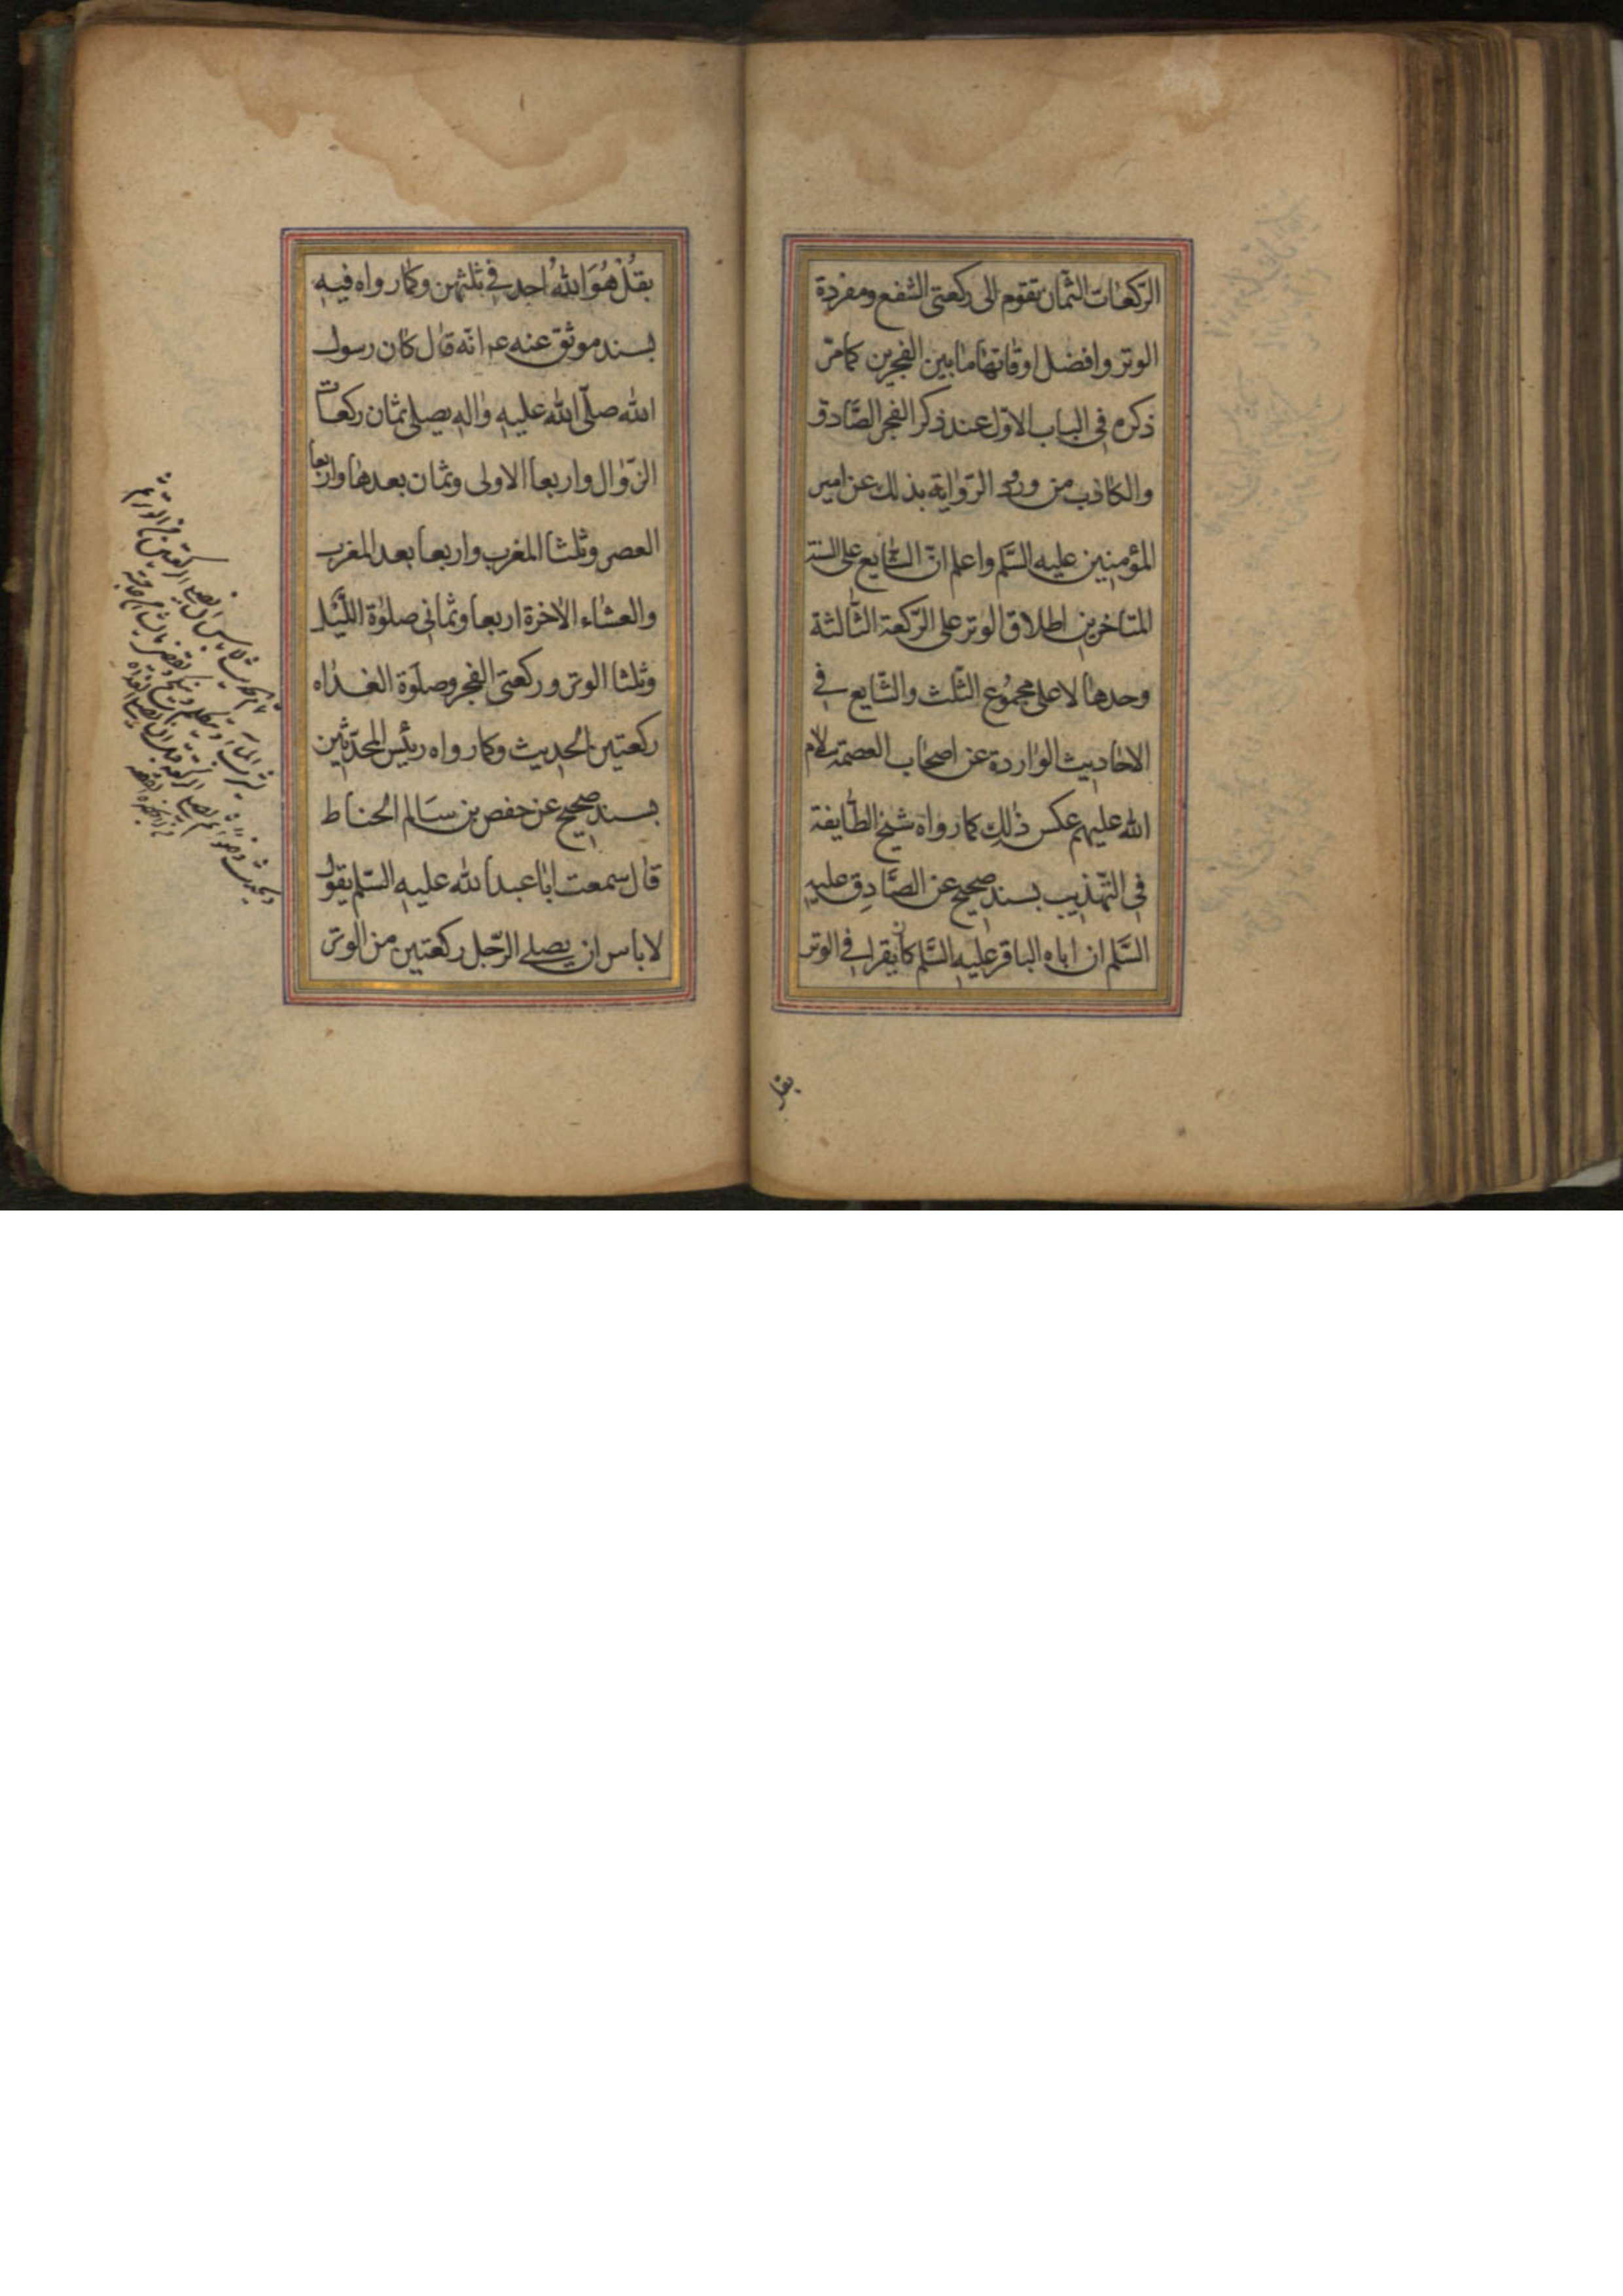 الرّكعات الثّمان تقوم الى ركعتى الشّفع ومفردة
الوتر وافضل اوقاتها ما بين الفجرين كما مرّ
ذكره فى الباب الاوّل عند ذكر الفجر الصّادق
والكاذب من ورود الرّواية بذلك عن امير
المؤمنين عليه السّلم واعلم انّ الشّايع على السنة
المتاخرين اطلاق الوتر على الرّكعة الثّالثة
وحدها لا على مجموع الثّلث والشّايع فى
الاحاديث الواردة عن اصحاب العصمة سلام
الله عليهم عكس ذلك كما رواه شيخ الطّايفة
فى التّهذيب بسند صحيح عن الصّادق عليه
السّلم ان اباه الباقر عليه السّلم كان يقرا فى الوتر
بقل
بقُل هُوَ اللهُ احد فى ثلثهن وكما رواه فيه
بسند موثق عنه عم انّه قال كان رسول
الله صلّى الله عليه واله يصلى ثمان ركعات
الزّوال واربعا الاولى وثمان بعدها واربعا
العصر وثلثا المغرب واربعا بعد المغرب
والعشاء الاخرة اربعا وثمانى صلوة اللّيل
وثلثا الوتر وركعتى الفجر وصلوة الغداه
ركعتين الحديث وكما رواه رئيس المحدّثين
بسند صحيح عن حفص بن سالم الحناط
قال سمعت ابا عبد الله عليه السّلم يقول
لا باس ان يصلى الرّجل ركعتين من الوتر